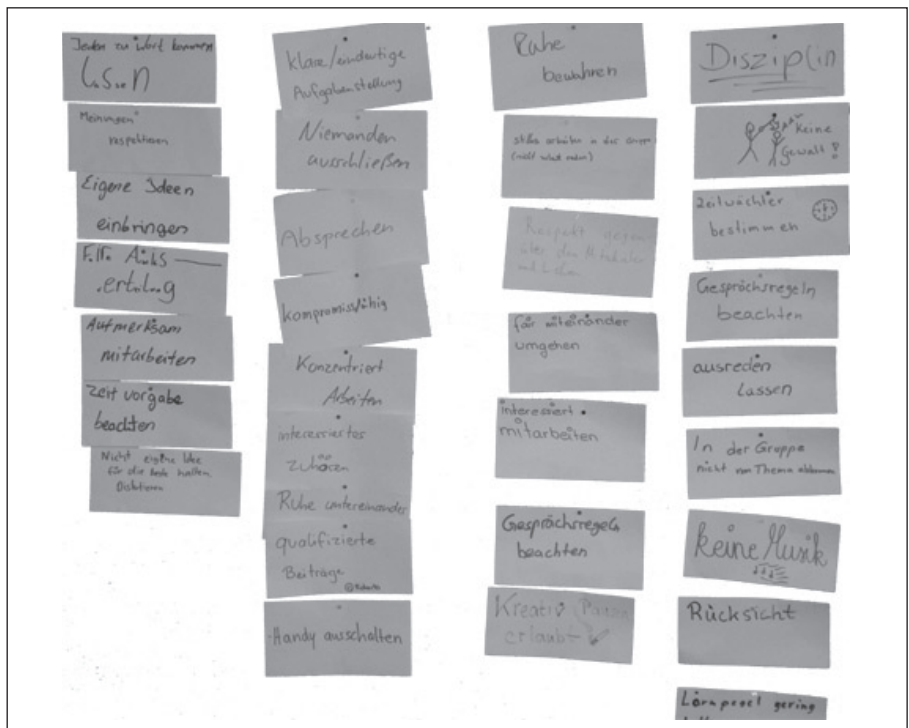 Jeden zu Wort kommen
lassen
Meinungen
respektieren
Eigene Ideen
einbringen
Aufmerksam
mitarbeiten
Zeit vorgabe
beachten
Nicht eigene Idee
für die beste halten
klare/eindeutige
Aufgabenstellung
Niemanden
ausschließen
Absprechen
kompromissfähig
Konzentriert
Arbeiten
interessiertes
zuhören
Ruhe untereinander
qualifizierte
Beiträge
Handy ausschalten
Ruhe
bewahren
stilles arbeiten in der Gruppe
Respekt gegen
über den Mitschüler
und Lehrern
fair miteinander
umgehen
interessiert
mitarbeiten
Gesprächsregeln
beachten
Kreativ
erlaubt
Disziplin
Keine
Gewalt!
Zeitwächter
bestimmen
Gesprächsregeln
beachten
ausreden
lassen
In der Gruppe
nicht vom Thema abkommen
keine Musik
Rücksicht
Lärmpegel gering